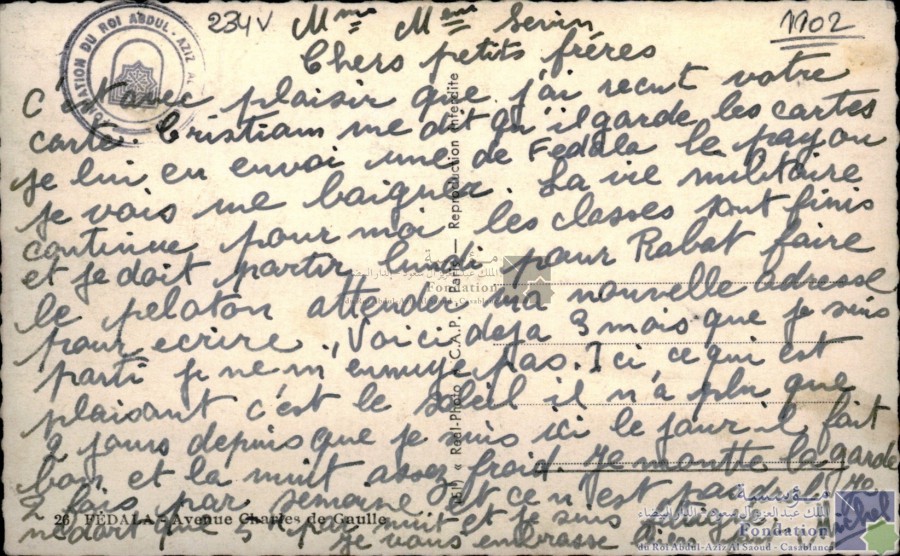 234V
1102
Mme Mem Serin
Chers petits fréres
C'est avec plaisir que j'ai recut votre
carte. Cristiam me dit qu'il garde les cartes
je lui en envoi une de Fedala le pay ou
je vais me baigner. La vie militaire
continue pour moi les classes sont finis
et je doit partir lundi pour Rabat faire
le peloton attender ma nouvelle adresse
pour ecrire. Voici deja 3 mois que je suis
parti je ne m'ennuye pas. Ici ce qui est
plaisant c'est le soleil il n'a plu que
2 jours depuis que je suis ici le jour il fait
bon et la nuit assez froid je montte la garde
2 fois par semaine et ce n'est pas
ne dort que 3 par nuit et je suis
je vous embrasse bien fort Michel
26 FÉDALA - Avenue Charles de Gaulle
« Réal-Photo » C.A.P. - Paris — Reproduction interdite
FONDATION DU ROI ABDUL-AZIZ AL
مؤسسة
الملك عبد العزيز آل سعود - الدار البيضاء
Fondation
du Roi Abdul-Aziz Al Saoud - Casablanca
مؤسسة
الملك عبد العزيز آل سعود - الدار البيضاء
Fondation
du Roi Abdul-Aziz Al Saoud - Casablanca